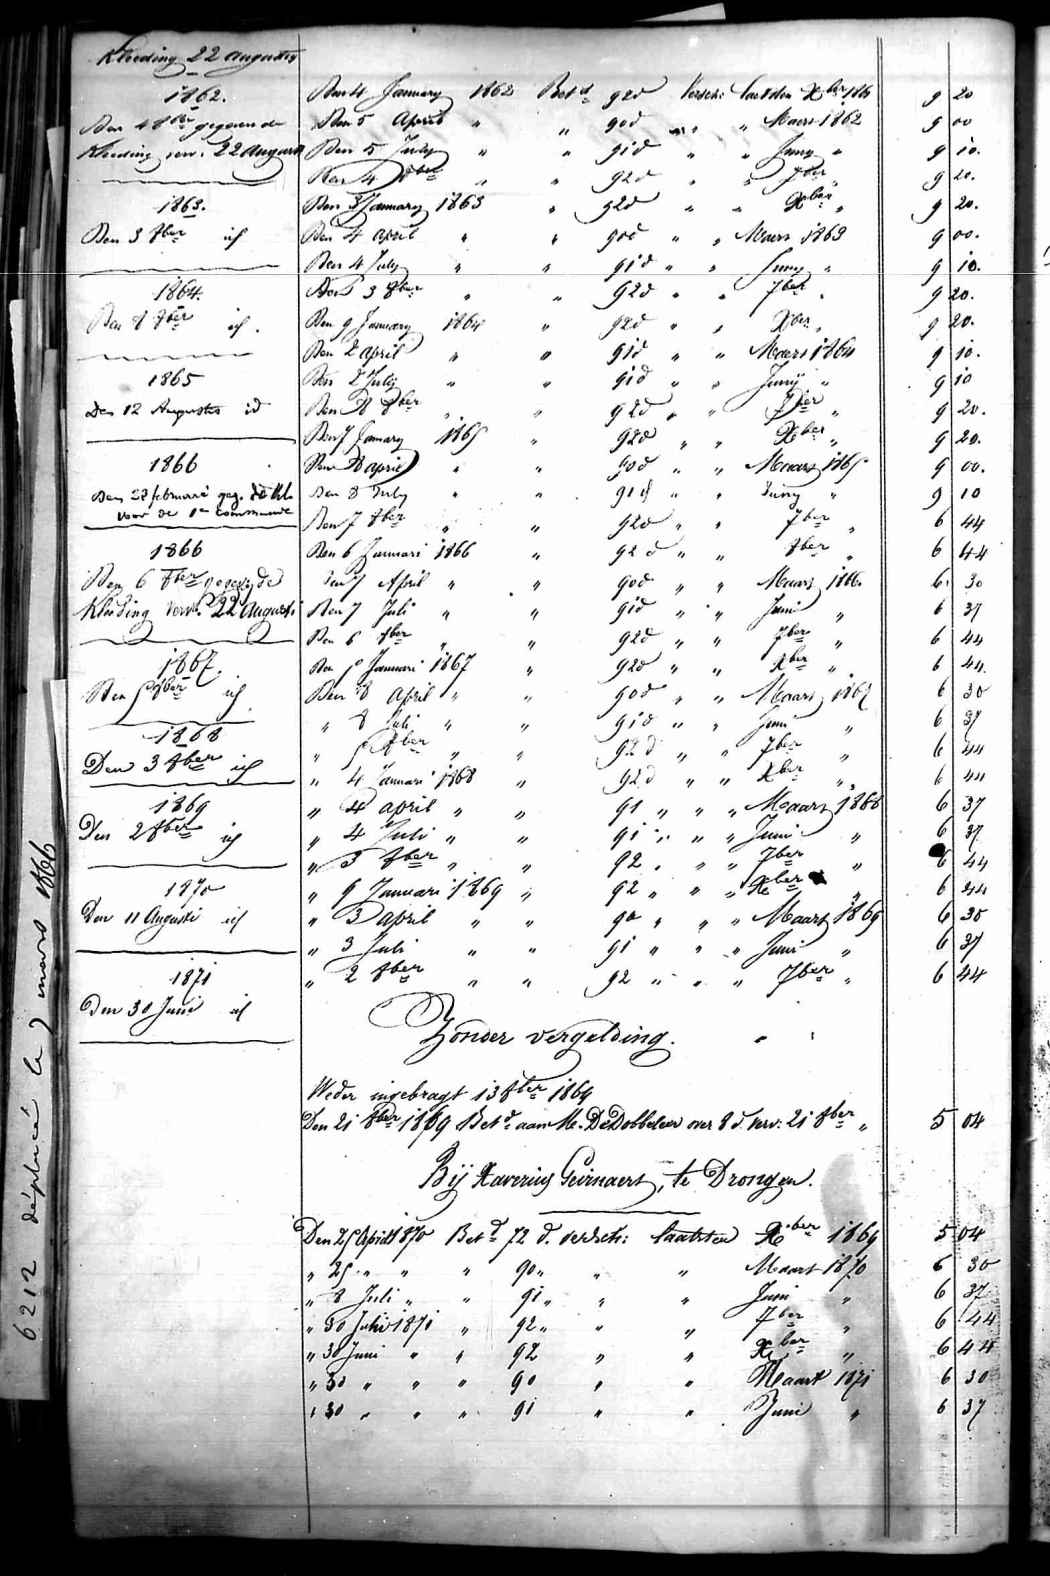 Kleeding 22 augustij
1862.
Den 4 8ber gegeven de
Kleeding verv. 22 Augusti
1863.
Den 3 8ber id
1864.
Den 8ber id.
1865
Den 12 Augustus id
1866
Den 27 februari geg. de kl.
voor de 1e communie
1866
Den 6 8ber gegev. de
Kleeding verv. 22 Augusti
1867.
Den 5 8ber id.
1868
Den 3 8ber id
1869
Den 2 8ber id
1870
Den 11 Augusti id
1871
Den 30 Juni id
Den 4 January 1862 Bet.d 92d Versch: Xber 186 9 20
Den 5 April " " 90d " " Maert 1862 9 00
Den 5 July " " 91d " " Juny " 9 10.
Den 4 8ber " " 92d " " 7ber " 9 20.
Den 3 January 1863 " 92d " " Xber " 9 20.
Den 4 april " " 90d " " Maert 1863 9 00.
Den 4 July " " 91d " " Juny " 9 10.
Den 3 8ber " " 92d " " 7ber " 9 20.
Den 9 January 1864 " 92d " " Xber " 9 20.
Den 2 april " " 91d " " Maert 1864 9 10.
Den 2 July " " 91d " " Junij " 9 10
Den 8 8ber " " 92d " " 7ber " 9 20.
Den 7 January 1865 " 92d " " Xber " 9 20.
Den 8 april " " 90d " " Maart 1865 9 00.
Den 8 July " " 91d " " Juny " 9 10
Den 7 8ber " " 92d " " 7ber " 6 44
Den 6 Januari 1866 " 92d " " Xber " 6 44
Den 7 April " " 90d " " Maart 1866 6 30
Den 7 Juli " " 91d " " Juni " 6 37
Den 6 8ber " " 92d " " 7ber " 6 44
Den 5 Januari 1867 " 92d " " Xber " 6 44
Den 8 April " " 90d " " Maart 1867 6 30
" 8 Juli " " 91d " " Juni " 6 37
" 5 8ber " " 92d " " 7ber " 6 44
" 4 Januari 1868 " 92d " " Xber " 6 44
" 4 april " " 91 " " " Maart 1868 6 37
" 4 Juli " " 91 " " " Juni " 6 37
" 3 8ber " " 92 " " " 7ber " 6 44
" 9 Januari 1869 " 92 " " " Xber " 6 44
" 3 april " " 90 " " " Maart 1869 6 30
" 3 Juli " " 91 " " " Juni " 6 37
" 2 8ber " " 92 " " " 7ber " 6 44
Zonder vergelding.
Weder ingebragt 13 8ber 1869
Den 21 8ber 1869 Bet.d aan M. DeDobbeleer over 8 d. verv: 21 8ber " 5 04
Bij Xaverius Geirnaert, te Drongen.
Den 25 April 1870 Bet.d 72 d. versch: laatsten Xber 1869 5 04
" 25 " " " 90 " " " Maart 1870 6 30
" 8 Juli " " 91 " " " Juni " 6 37
" 30 Juni 1871 " 92 " " " 7ber " 6 44
" 30 Juni " " 92 " " Xber " 6 44
" 30 " " " 90 " " Maart 1871 6 30
" 30 " " " 91 " " Juni " 6 37
6212 déplacé le 7 mars 1866